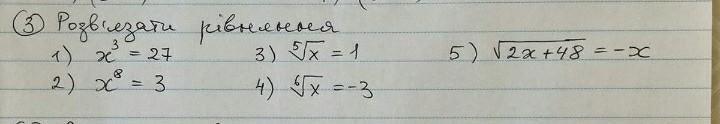 ③ Розв'язати рівняння
1) x³ = 27 3) ⁵√x = 1 5) √(2x+48) = -x
2) x⁸ = 3 4) ⁶√x = -3